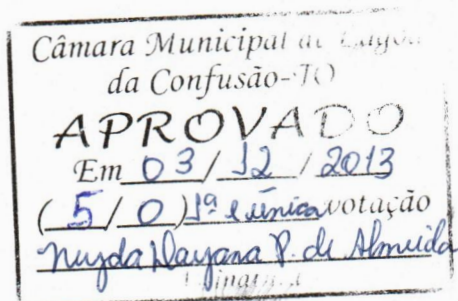 Câmara Municipal de Lagoa
da Confusão-TO
APROVADO
Em 03/12/2013
(5/0) 1ª e única votação
Dayana P. de Almeida